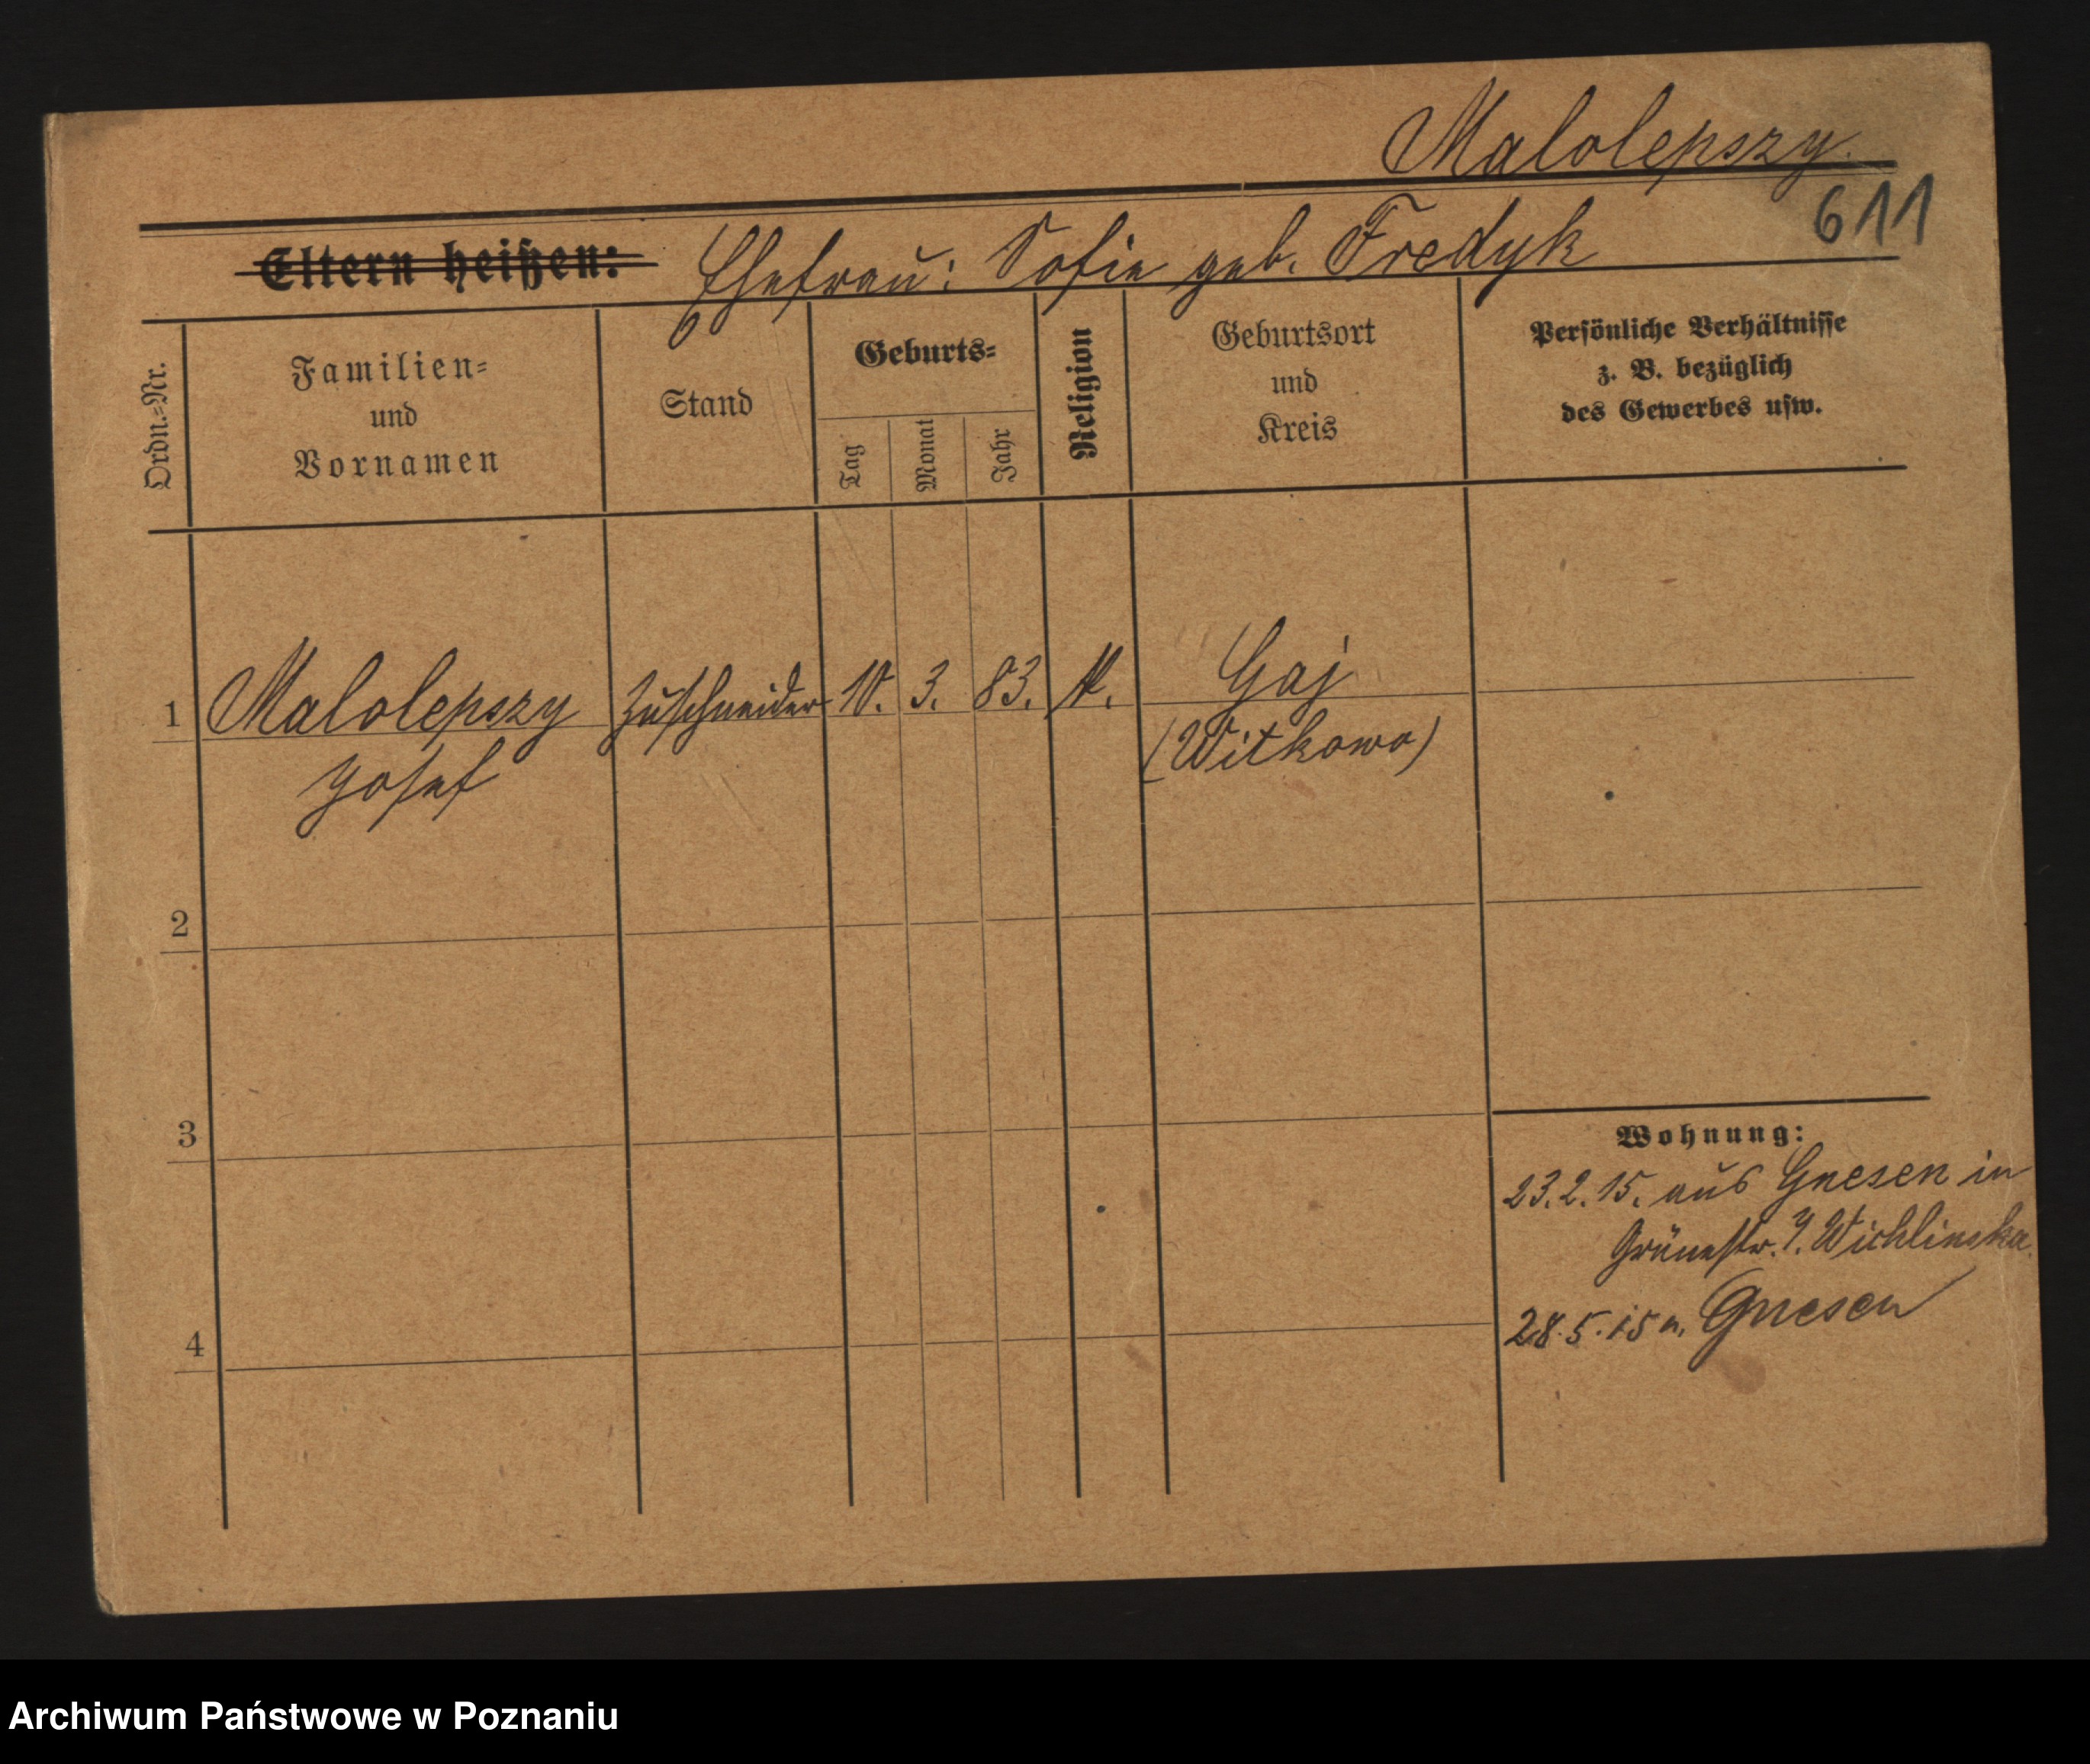 Malolepszy.
611
Eltern heißen: Ehefrau: Sofie geb. Fredyk
Ordn.-Nr.
Familien-
und
Vornamen
Stand
Geburts-
Tag
Monat
Jahr
Religion
Geburtsort
und
Kreis
Persönliche Verhältnisse
z. B. bezüglich
des Gewerbes usw.
1 Malolepszy Zuschneider 10. 3. 83. k. Gaj
Josef (Witkowo)
2
3
4
Wohnung:
23.2.15. aus Gnesen in
Grünestr. Wichlinska
28.5.15 n. Gnesen
Archiwum Państwowe w Poznaniu